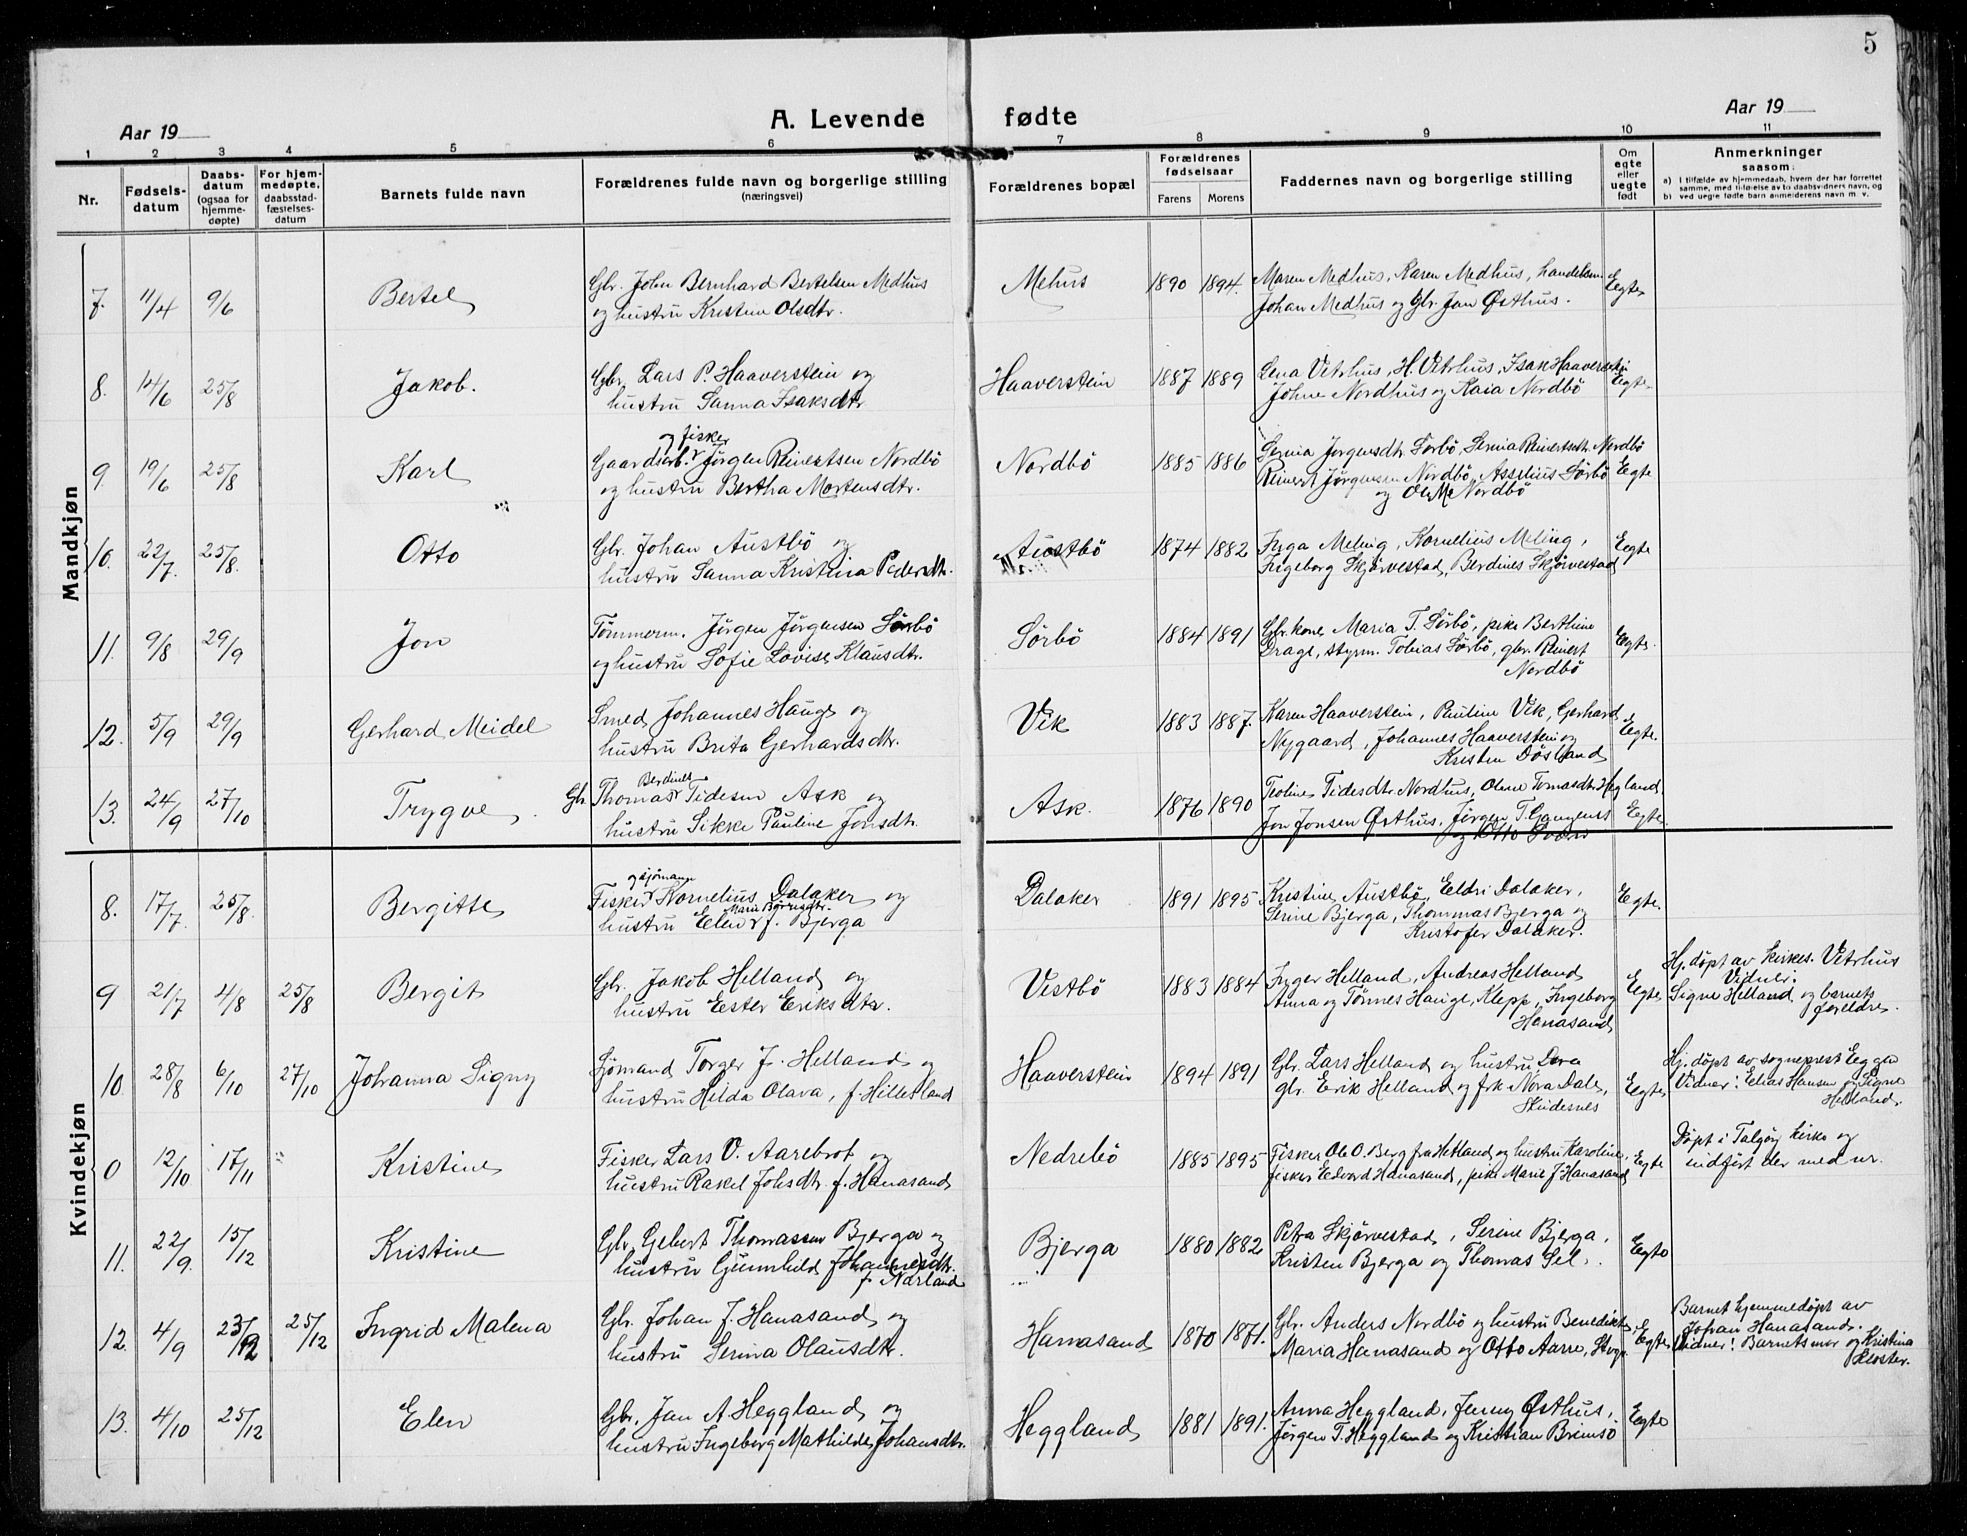 5
A. Levende fødte
Aar 19
Aar 19
1 2 3 4 5 6 7 8 9 10 11
Nr.
Fødselsdatum
Daabsdatum (ogsaa for hjemmedøpte)
For hjemmedøpte, daabsstadfæstelsesdatum
Barnets fulde navn
Forældrenes fulde navn og borgerlige stilling (næringsvei)
Forældrenes bopæl
Forældrenes fødselsaar
Farens Morens
Faddernes navn og borgerlige stilling
Om egte eller uegte født
Anmerkninger saasom:
a) I tilfælde av hjemmedaab, hvem der har forrettet samme, med tilføielse av to daabsvidners navn, og
b) ved uegte fødte barn anmelderens navn m. v.
Mandkjøn
7. 11/4 9/6 Bertel
Gbr. John Bernhard Bertelsen Medhus
og hustru Kristine Olsdtr.
Mehus 1890 1894.
Maren Medhus, Karen Medhus, handelsm.
Johan Medhus og Gbr. Jan Østhus.
Egte
8. 14/6 25/8 Jakob.
Gbr. Lars P. Haaverstein og
hustru Sanna Isaksdtr
Haaverstein 1887 1889
Lena Vitrhus, H. Vitrhus, Isak Haaverstein
Johne Nordhus og Kaia Nordbö
Egte
9. 19/6 25/8 Karl
og fisker
Gaardsarb. Jørgen Reinertsen Nordbö
og hustru Bertha Mortensdtr.
Nordbö 1885 1886
Serina Jørgensdtr. Sörbö, Serina Reinertsdtr. Nordbö
Reinert Jørgensen Nordbö, Asselius Sörbö
og Ole M. Nordbö
Egte
10. 22/7. 25/8. Otto
Gbr. Johan Austbö og
hustru Sanna Kristina Pedersdtr.
Austbö 1874 1882
Inga Meling, Kornelius Meling,
Ingeborg Skjörvestad, Berdines Skjörvestad
Egte
11. 9/8 29/9 Jon
Tømmerm. Jørgen Jørgensen Sörbö
og hustru Sofie Lovise Klausdtr.
Sörbö 1884 1891
Gbr. kone Maria T. Sörbö, pike Berthine
Drage, styrm. Tobias Sörbö, gbr. Reinert
Nordbö
Egte.
12. 5/9 29/9 Gerhard Meidel
Smed Johannes Hauge og
hustru Brita Gerhardsdtr.
Vik 1883 1887.
Karen Haaverstein, Pauline Vik, Gerhard
Nygaard, Johannes Haaverstein og
Kristen Døsland
Egte.
13. 24/9 27/10 Trygve
Berdines
Gbr. Thomas Tidesen Ask og
hustru Sikke Pauline Jonsdtr.
Ask. 1876 1890
Teoline Tidesdtr. Nordhus, Olene Tomasdtr. Hegland,
Jon Jonsen Østhus, Jørgen T.
og Otto
Egte.
Kvindekjøn
8. 17/7. 25/8. Bergitte
og sjømann
Fisker Kornelius Dalaker og
Maria Børresdtr.
hustru Elen f. Bjerga
Dalaker 1891 1895
Kristine Austbö, Eldri Dalaker,
Serine Bjerga, Thommas Bjerga og
Kristofer Dalaker.
Egte.
9 21/7 4/8 25/8 Bergit
Gbr. Jakob Helland og
hustru Ester Eriksdtr.
Vestbö 1883 1884
Inger Helland, Andreas Helland
Anna og Tönnes Hauge, Klepp, Ingeborg
Hanasand
Egte
Hj. døpt av kirkes. Vitrhus
Vidner:
Signe Helland og barnets
foreldre.
10 28/8 6/10 27/10 Johanna Signy
Sjømand Torger J. Helland og
hustru Hilda Olava, f. Hilletland
Haaverstein 1894 1891
Gbr. Lars Helland og hustru Dora
gbr. Erik Helland og frk Nora Dale,
Skudesnes
Egte
Hj. døpt av sogneprest Eegge
Vidner: Elias Hansen og Signe
Helland.
0 12/10 17/11 " Kristine
Fisker Lars O. Aarebrot og
hustru Rakel Johsdtr. f. Hanasand
Nedrebö 1885 1895
Fisker Ole O. Berg fra Hetland og hustru Karoline,
fisker Edvard Hanasand, pike Marie J. Hanasand
Egte
Døpt i Talgöy kirke og
indført der med nr.
11. 22/9. 15/12 Kristine
Gbr. Gebert Thomassen Bjerga og
hustru Gunnhild Johannesdtr.
f. Nörland
Bjerga 1880 1882
Petra Skjörvestad, Serine Bjerga,
Kristen Bjerga og Thomas Sel.
Egte
12. 4/9 23/12 25/12 Ingrid Malena
Gbr. Johan J. Hanasand og
hustru Serina Olausdtr.
Hanasand 1870 1871.
Gbr. Anders Nordbö og hustru Benedikte,
Maria Hanasand og Otto Aarre,
Egte
Barnet hjemmedøpt av
Johan Hanasand.
Vidner: Barnets mor og Kristina
Kloster.
13. 4/10 25/12 Elen
Gbr. Jan A. Heggland og
hustru Ingeborg Mathilde Johansdtr.
Heggland 1881 1891.
Anna Heggland, Jenny Østhus,
Jørgen T. Heggland og Kristian Brimsö
Egte